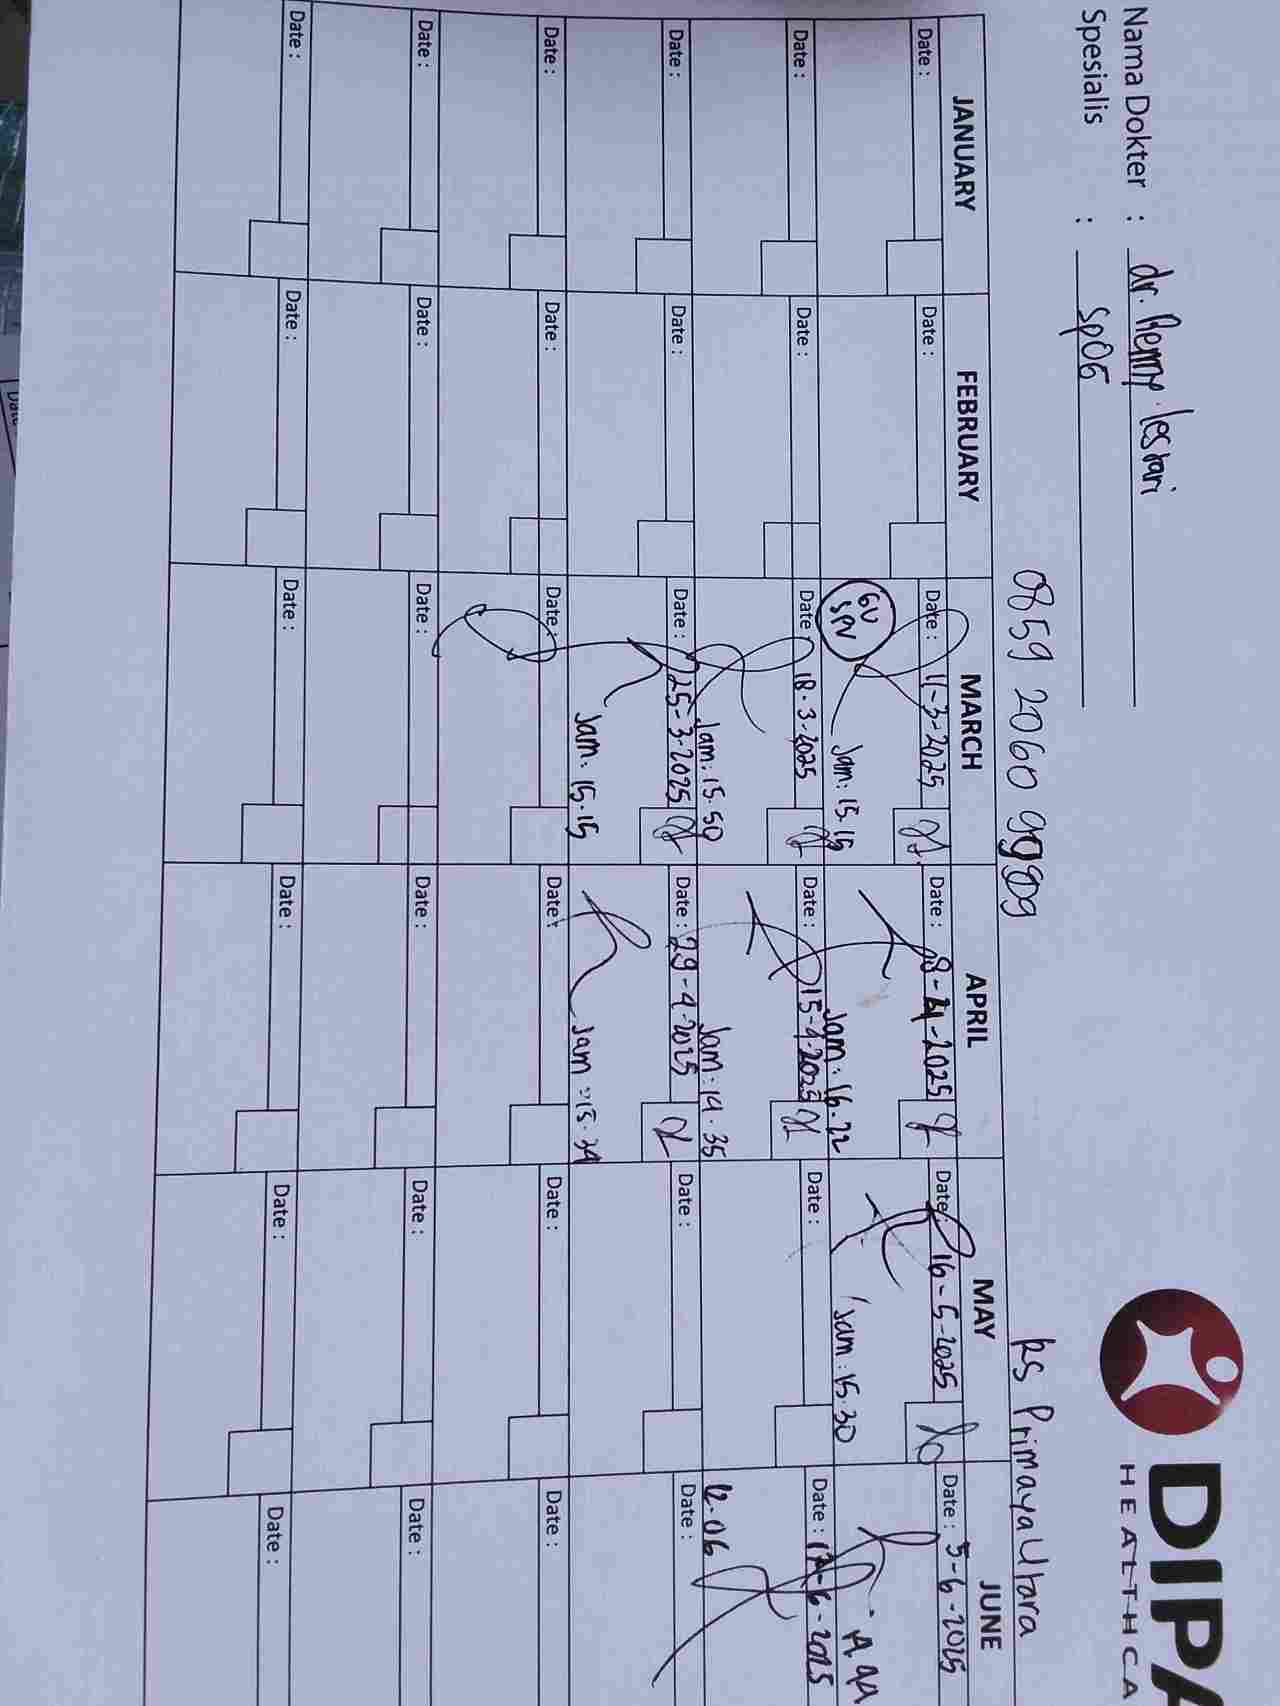 DIPA
HEALTHCA
Nama Dokter : dr. Renny Lestari
Spesialis : SpOG
0859 2060 9909
RS Primaya Utara
JANUARY FEBRUARY MARCH APRIL MAY JUNE
Date : Date : Date : 11-3-2025 Date : 8-4-2025 Date : 16-5-2025 Date : 5-6-2025
GV
SPV
Jam : 15.15 Jam : 16.22 Jam : 15.30
Date : Date : Date : 18.3.2025 Date : 15-4-2025 Date : Date : 17-6-2025
Jam : 15.50 Jam : 14.35 12.06
Date : Date : Date : 25-3-2025 Date : 29-4-2025 Date : Date :
Jam : 15.15 Jam : 15.34
Date : Date : Date : Date : Date : Date :
Date : Date : Date : Date : Date : Date :
Date : Date : Date : Date : Date : Date :